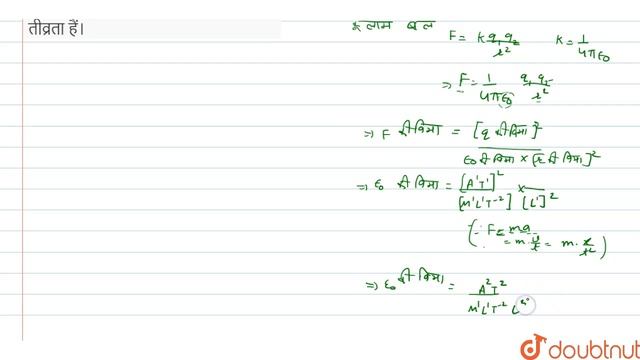 तीव्रता हैं।
कूलाम बल
F = K q₁ q₂ / r² K = 1 / 4πε₀
⇒ F = 1 / 4πε₀ q₁ q₂ / r²
⇒ F की विमा = [q की विमा]² / ε₀ की विमा × [r की विमा]²
⇒ ε₀ की विमा = [A¹T¹]² / [M¹L¹T⁻²] [L¹]²
(∵ F = ma
= m. v/t = m. x/t²)
⇒ ε₀ की विमा = A²T² / M¹L¹T⁻² L²
doubtnut